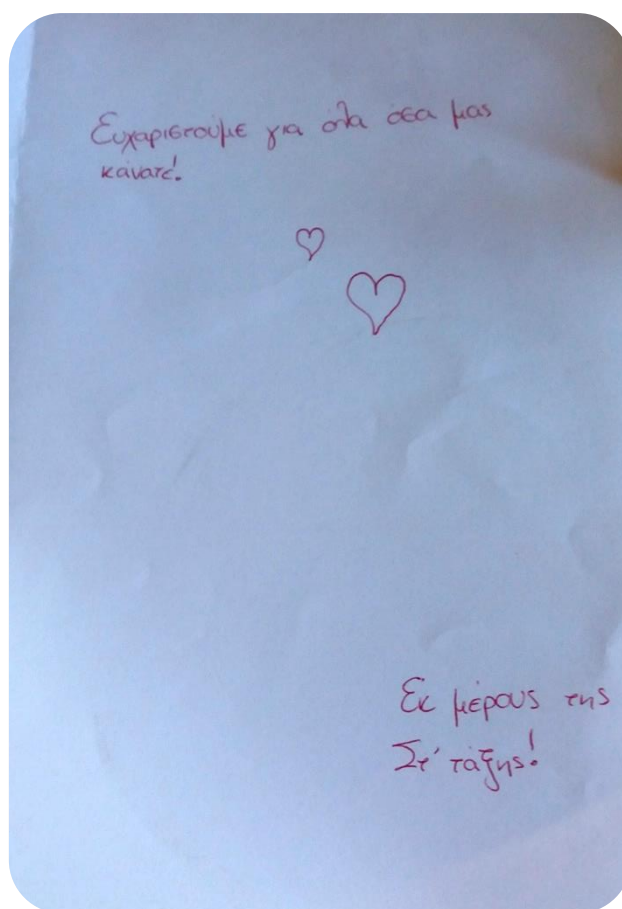 Ευχαριστούμε για όλα όσα μας
κάνατε!
Εκ μέρους της
Στ' τάξης!